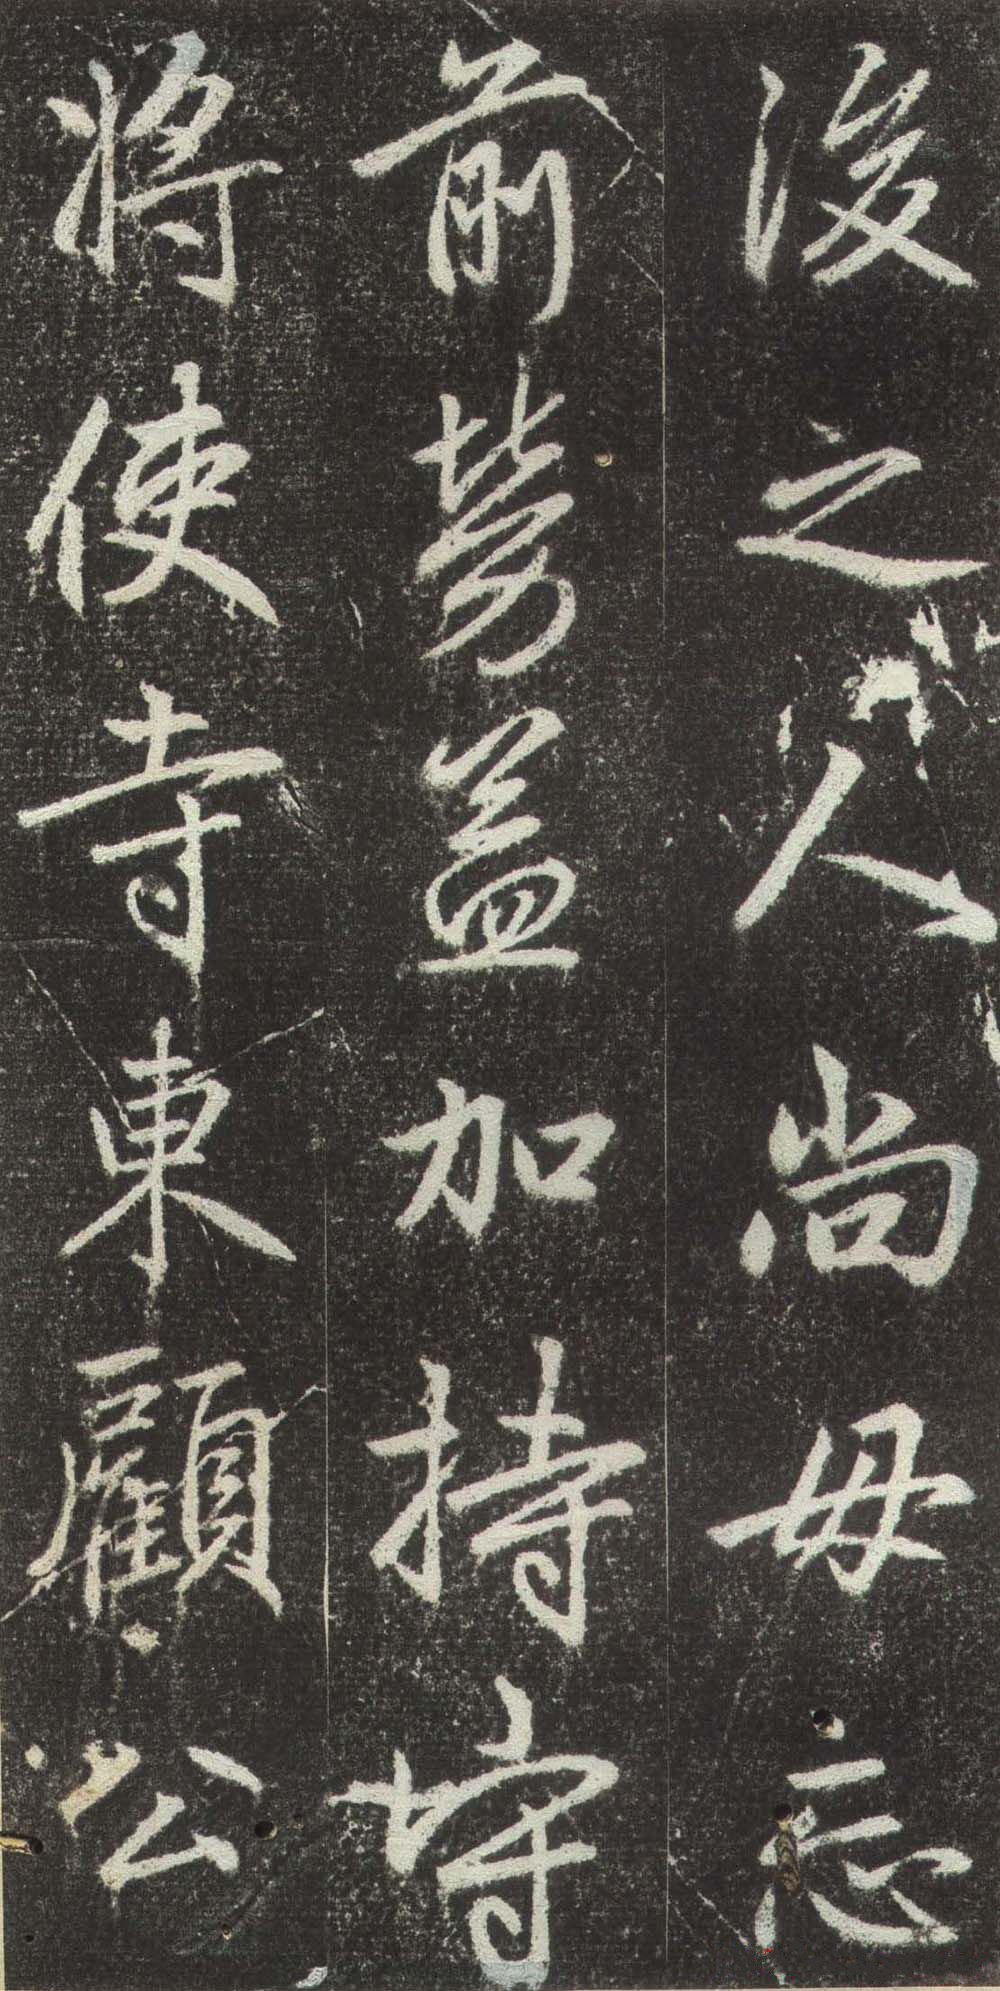 後之人尚毋忘
前勞益加持守
將使寺東顧公